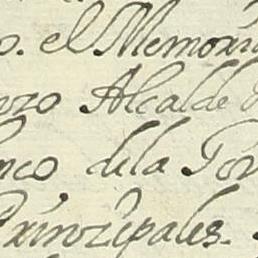 o. el Memori
nzo Alcalde
nco, dela Po
Prinzipales.